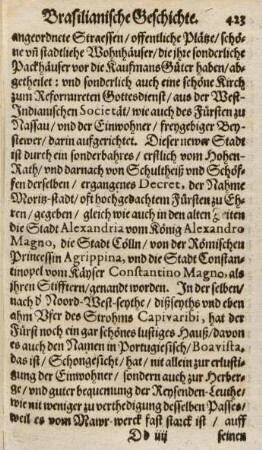 Brasilianische Geschichte. 423
angeordnete Straessen / offentliche Plätze / schö-
ne vñ stadtliche Wohnhäuser / die jhre sonderliche
Packhäuser vor die Kauffmans Güter haben / ab-
getheilet : vnd sonderlich auch eine schöne Kirch
zum Reformireten Gottesdienst / aus der West-
Indianischen Societät / wie auch des Fürsten zu
Nassau / vnd der Einwohner / freygebiger Bey-
stewer / darin auffgerichtet. Dieser newer Stadt
ist durch ein sonderbahres / erstlich vom Hohen-
Rath / vnd darnach von Schultheiß vnd Schöf-
fen derselben / ergangenes Decret, der Nahme
Moritz-stadt / oft hochgedachtem Fürsten zu Eh-
ren / gegeben / gleich wie auch in den alten Zeiten
die Stadt Alexandria vom König Alexandro
Magno, die Stadt Cölln / von der Römischen
Princessin Agrippina, vnd die Stadt Constan-
tinopel vom Käyser Constantino Magno, als
jhren Stifftern / genandt worden. In der selben /
nach d' Noord-West-seythe / dißseyths vnd eben
ahm Vfer des Strohms Capivaribi, hat der
Fürst noch ein gar schönes lustiges Hauß / davon
es auch den Namen in Portugiesisch / Boavista,
das ist / Schongesicht / hat / nit allein zur erlusti-
gung der Einwohner / sondern auch zur Herber-
ge / vnd guter bequenung der Reysenden-Leuthe /
wie nit weniger zu verthedigung desselben Passes /
weil es vom Mawr-werck fast starck ist / auff
Dd iiij seinen